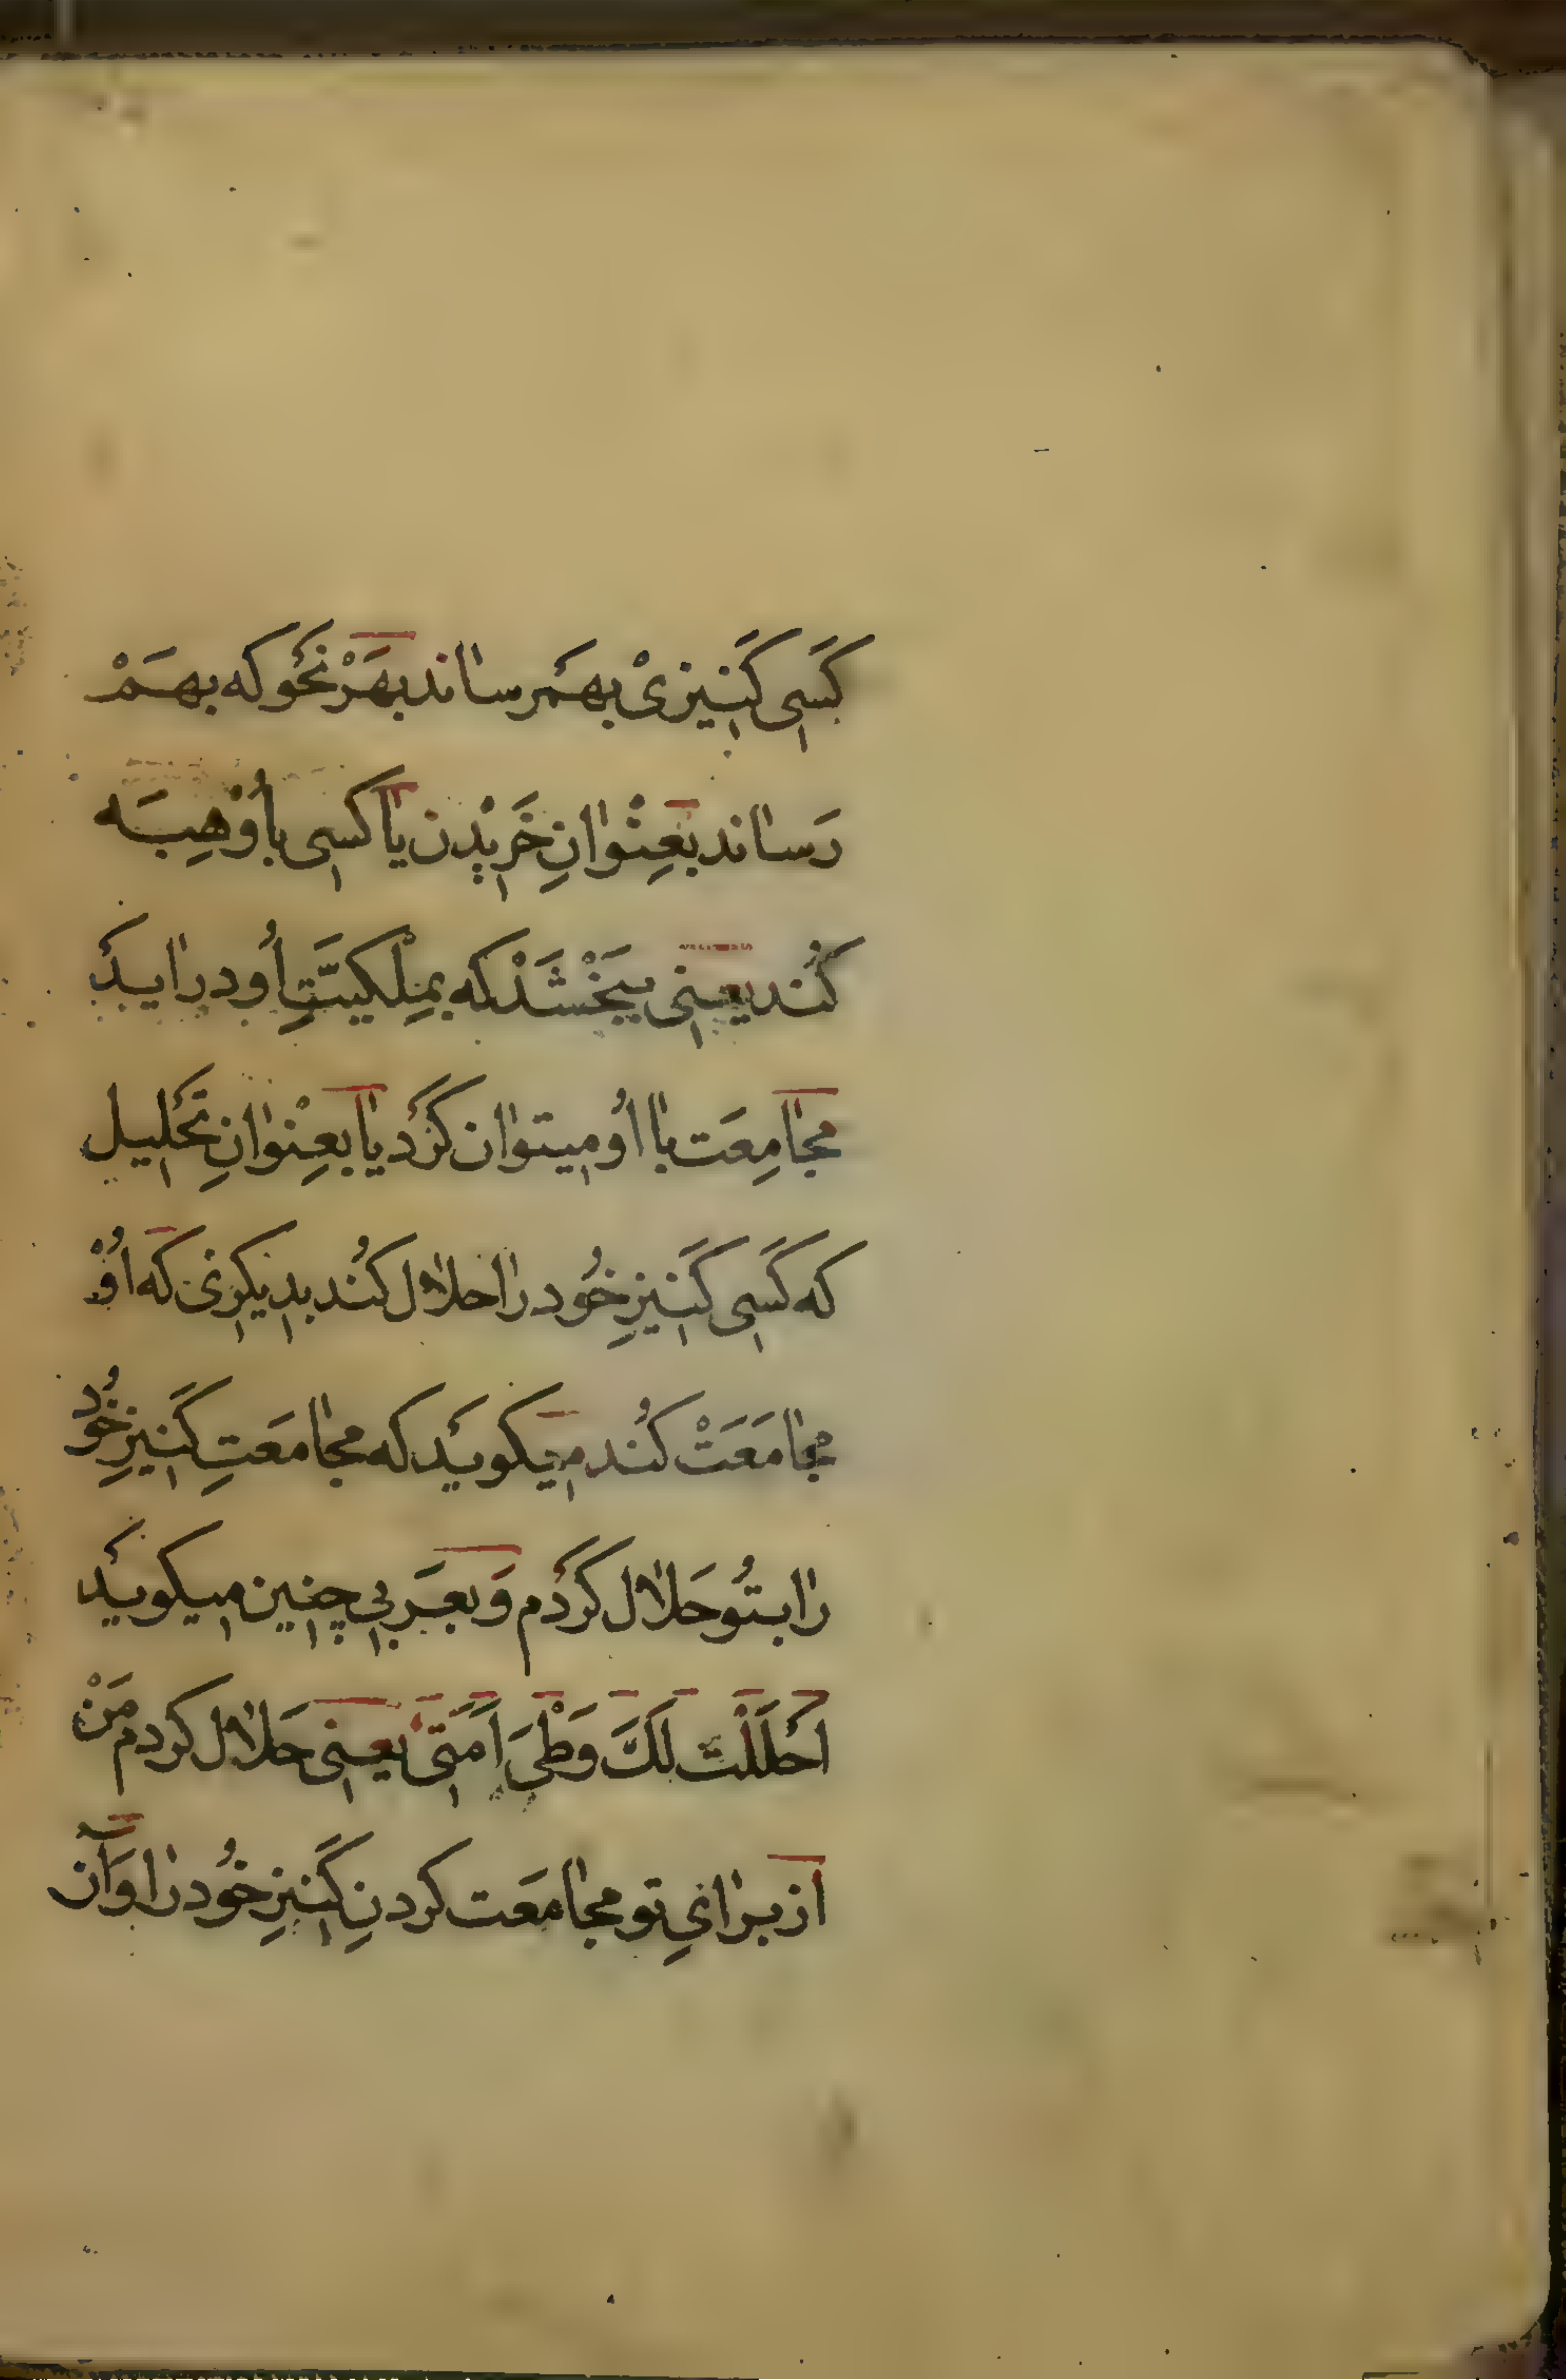 کَسی کَنیزیْ بهَم رساند بهَرْ نَحْو که بهَمْ
رَساند بعِنْوانِ خَریْدن یا کسی باُوْ هِبَه
کُند یعنی ببَخْشَدْ که بمِلْکیَّتِ اُو درایَد
مجامِعَت با اُو میتوان کَرْد یا بعِنْوانِ تَحْلیل
که کَسی کَنیزِ خُود را حلال کُند بدیکری که اُوْ
مجامَعَتْ کُند میکویَد که مجامَعَتِ کَنیزِ خُود
را بتُو حَلال کَرْدم وَ بعَربی چنین میکویَد
اَحْلَلْتُ لَكَ وَطْیَ اَمَتی یعنی حَلال کردم مَنْ
از برایِ تو مجامَعَت کردنِ کَنیزِ خُود را وَ آن